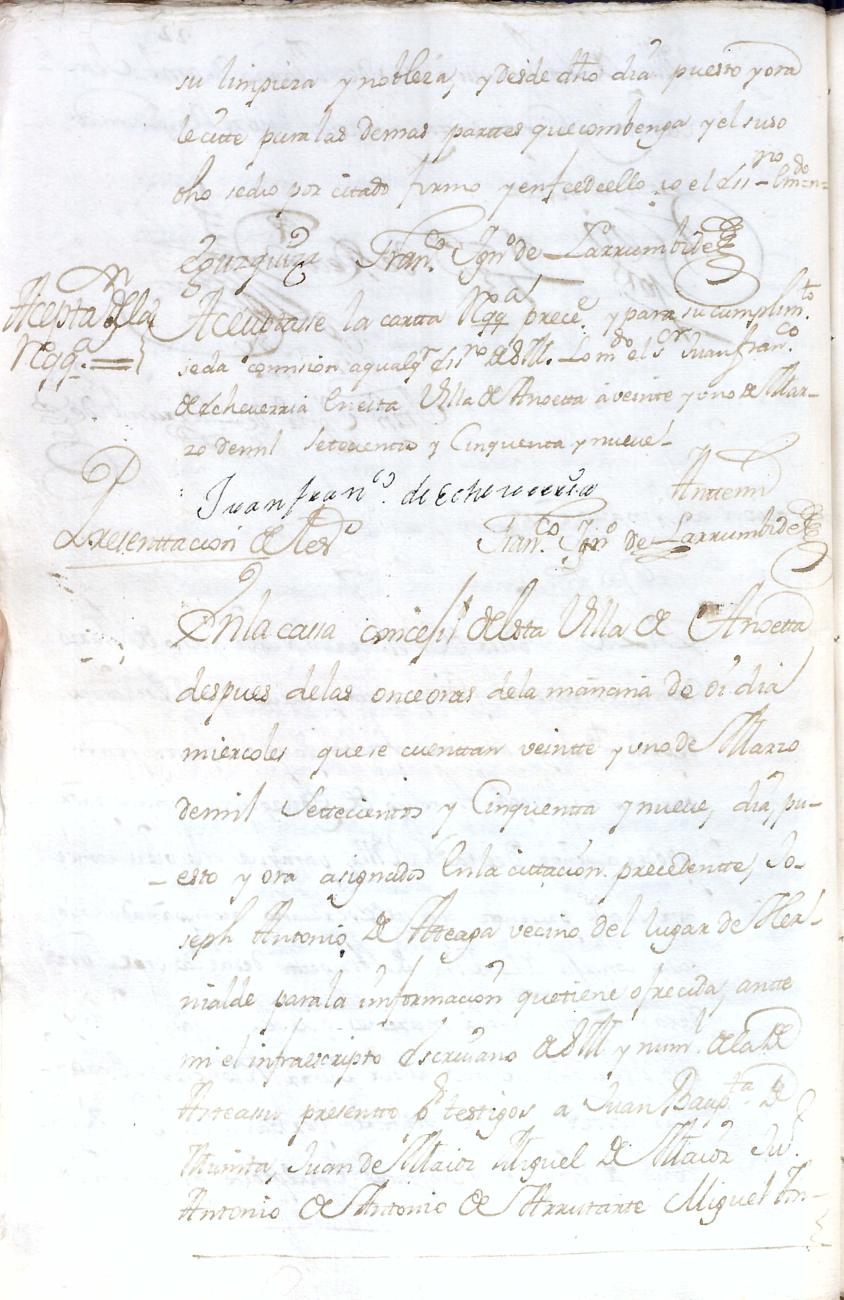 su limpieza y nobleza, y desde dho dia puesto y ora
le citte para las demas parttes que combenga y el suso
dho se dio por citado firmo y en fee de ello yo el Ess.no
Eguzquiza Fran.co Ign.o de Larrumbide
Acepta.n de la
Reqq.a
Aceuttasse la cartta Req.a prece.e y para su cumplim.to
se da comission a qualq.r Ess.no de S.M. Lo m.do el s.or Juan fran.co
de Echeverria En esta Villa de Anoetta a veinte y uno de Mar-
zo de mil Setecientos y Cinquenta y nueve
Juan fran.co de Echeverria Antemi
Fran.co Ign.o de Larrumbide
Presenttacion de tes.o
En la cassa concejil de esta Villa de Anoetta
despues de las once oras de la mañana de oi dia
miercoles que se cuenttan veintte y uno de Marzo
de mil Settecientos y Cinquentta y nueve, dia, pu-
esto y ora asignados En la cittacion precedentte, Jo-
seph Antonio de Atteaga vecino del lugar de Her-
nialde para la informacion que tiene ofrecida, antte
mi el infraescripto Escrivano de S.M. y num.l de la de
Asteasu presentto p.r testigos a Juan Baup.ta de
Juan de Maioz Miguel de Maioz Ju.n
Antonio de Antonio de Arrutarte Miguel An-